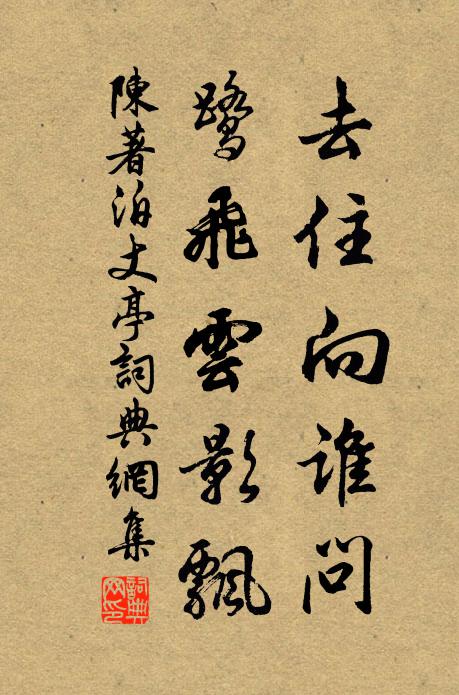 去住向誰問
鷺飛雲影飄
陳著泊丈亭詞典網集
詞典網印